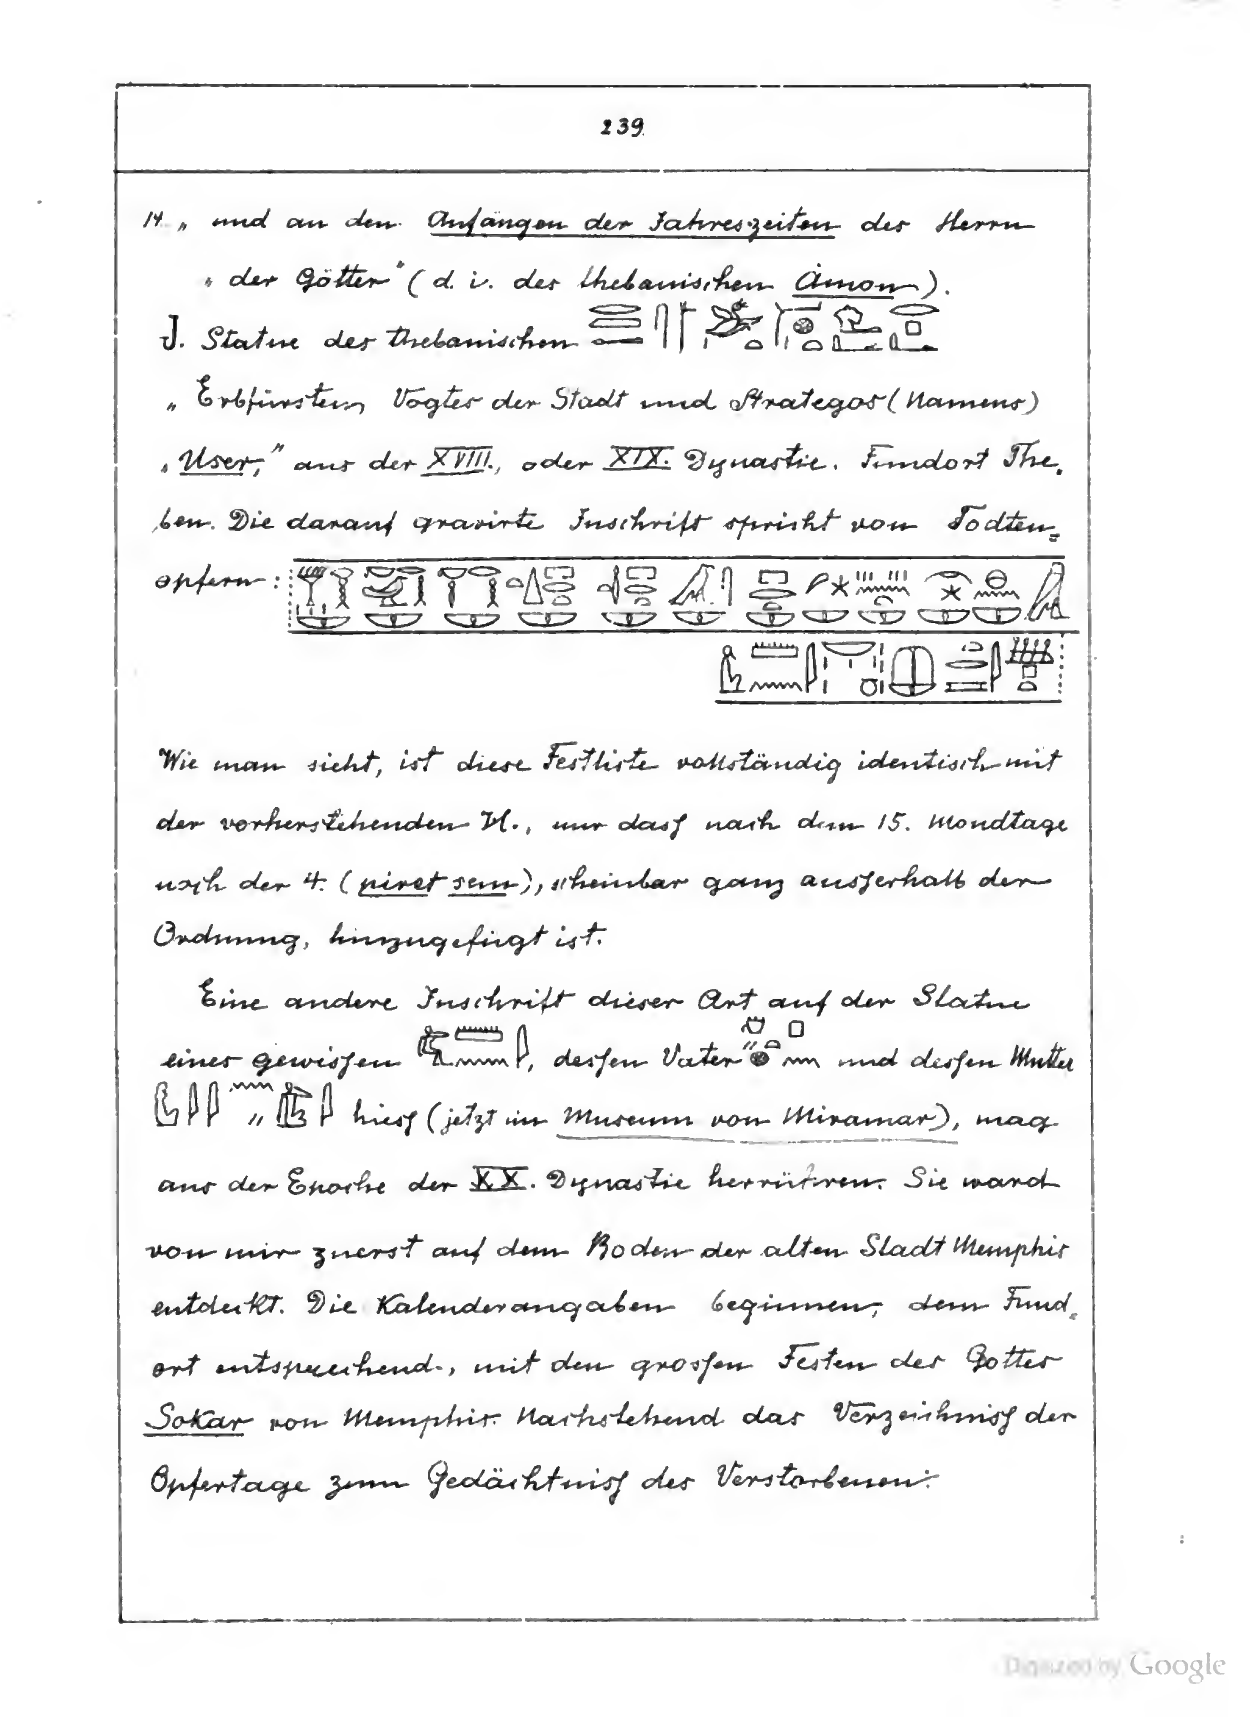 239
14 „ und an den Anfängen der Jahreszeiten des Herrn
„ der Götter“ (d. i. des thebanischen Åmon).
J. Statue des thebanischen
„ Erbfürsten, Vogtes der Stadt und Strategos (Namens)
„ User,“ aus der XVIII., oder XIX. Dynastie. Fundort The-
ben. Die darauf gravirte Inschrift spricht von Todten-
opfern:
Wie man sieht, ist diese Festliste vollständig identisch mit
der vorherstehenden H., nur dass nach dem 15. Mondtage
noch der 4. (piret sem), scheinbar ganz ausserhalb der
Ordnung, hinzugefügt ist.
Eine andere Inschrift dieser Art auf der Statue
eines gewissen , dessen Vater und dessen Mutter
hiess (jetzt im Museum von Miramar), mag
aus der Epoche der XX. Dynastie herrühren. Sie ward
von mir zuerst auf dem Boden der alten Stadt Memphis
entdeckt. Die Kalenderangaben beginnen, dem Fund-
ort entsprechend, mit den grossen Festen des Gottes
Sokar von Memphis. Nachstehend das Verzeichniss der
Opfertage zum Gedächtniss des Verstorbenen:
Digitized by Google